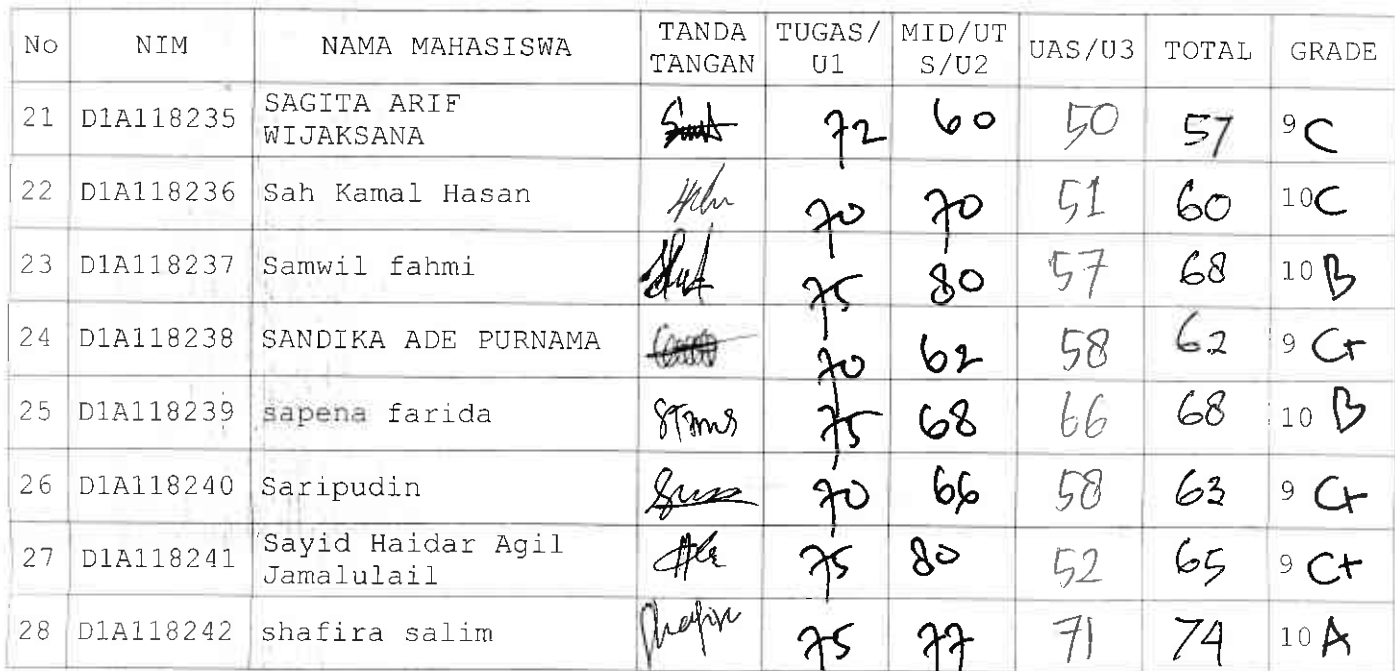 No NIM NAMA MAHASISWA TANDA TANGAN TUGAS/U1 MID/UTS/U2 UAS/U3 TOTAL GRADE
21 D1A118235 SAGITA ARIF WIJAKSANA 72 60 50 57 9 C
22 D1A118236 Sah Kamal Hasan 70 70 51 60 10 C
23 D1A118237 Samwil fahmi 75 80 57 68 10 B
24 D1A118238 SANDIKA ADE PURNAMA 70 62 58 62 9 C+
25 D1A118239 sapena farida 75 68 66 68 10 B
26 D1A118240 Saripudin 70 66 58 63 9 C+
27 D1A118241 Sayid Haidar Agil Jamalulail 75 80 52 65 9 C+
28 D1A118242 shafira salim 75 77 71 74 10 A